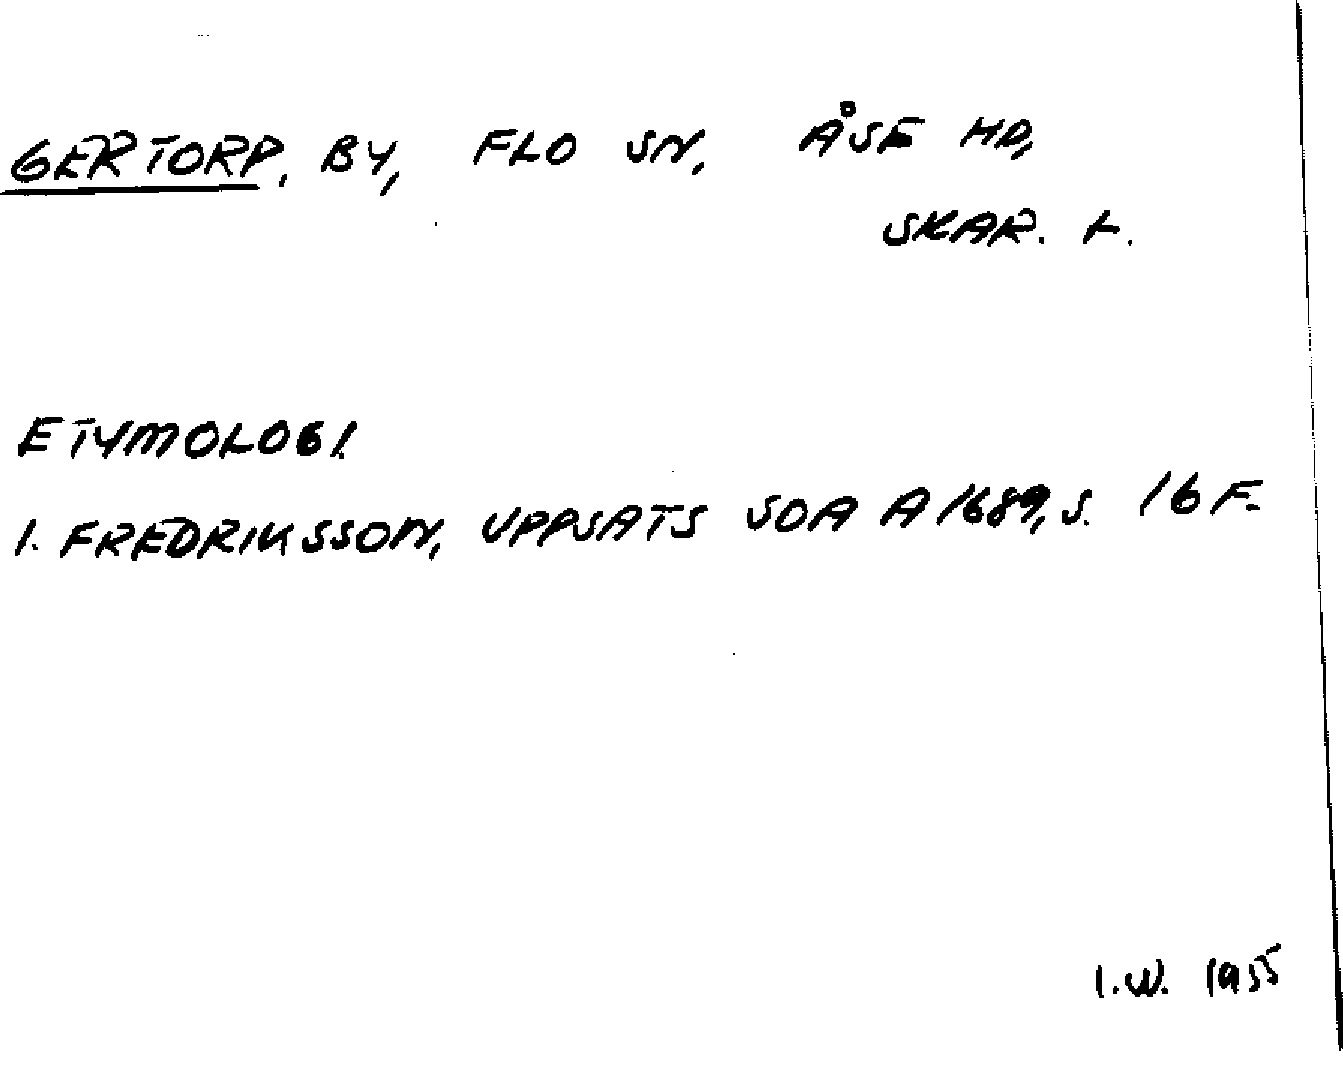 GERTORP, BY, FLO SN, ÅSE HD,
SKAR. L.
ETYMOLOGI.
I. FREDRIKSSON, UPPSATS SOA A 1689, S. 16 F.
I.W. 1955